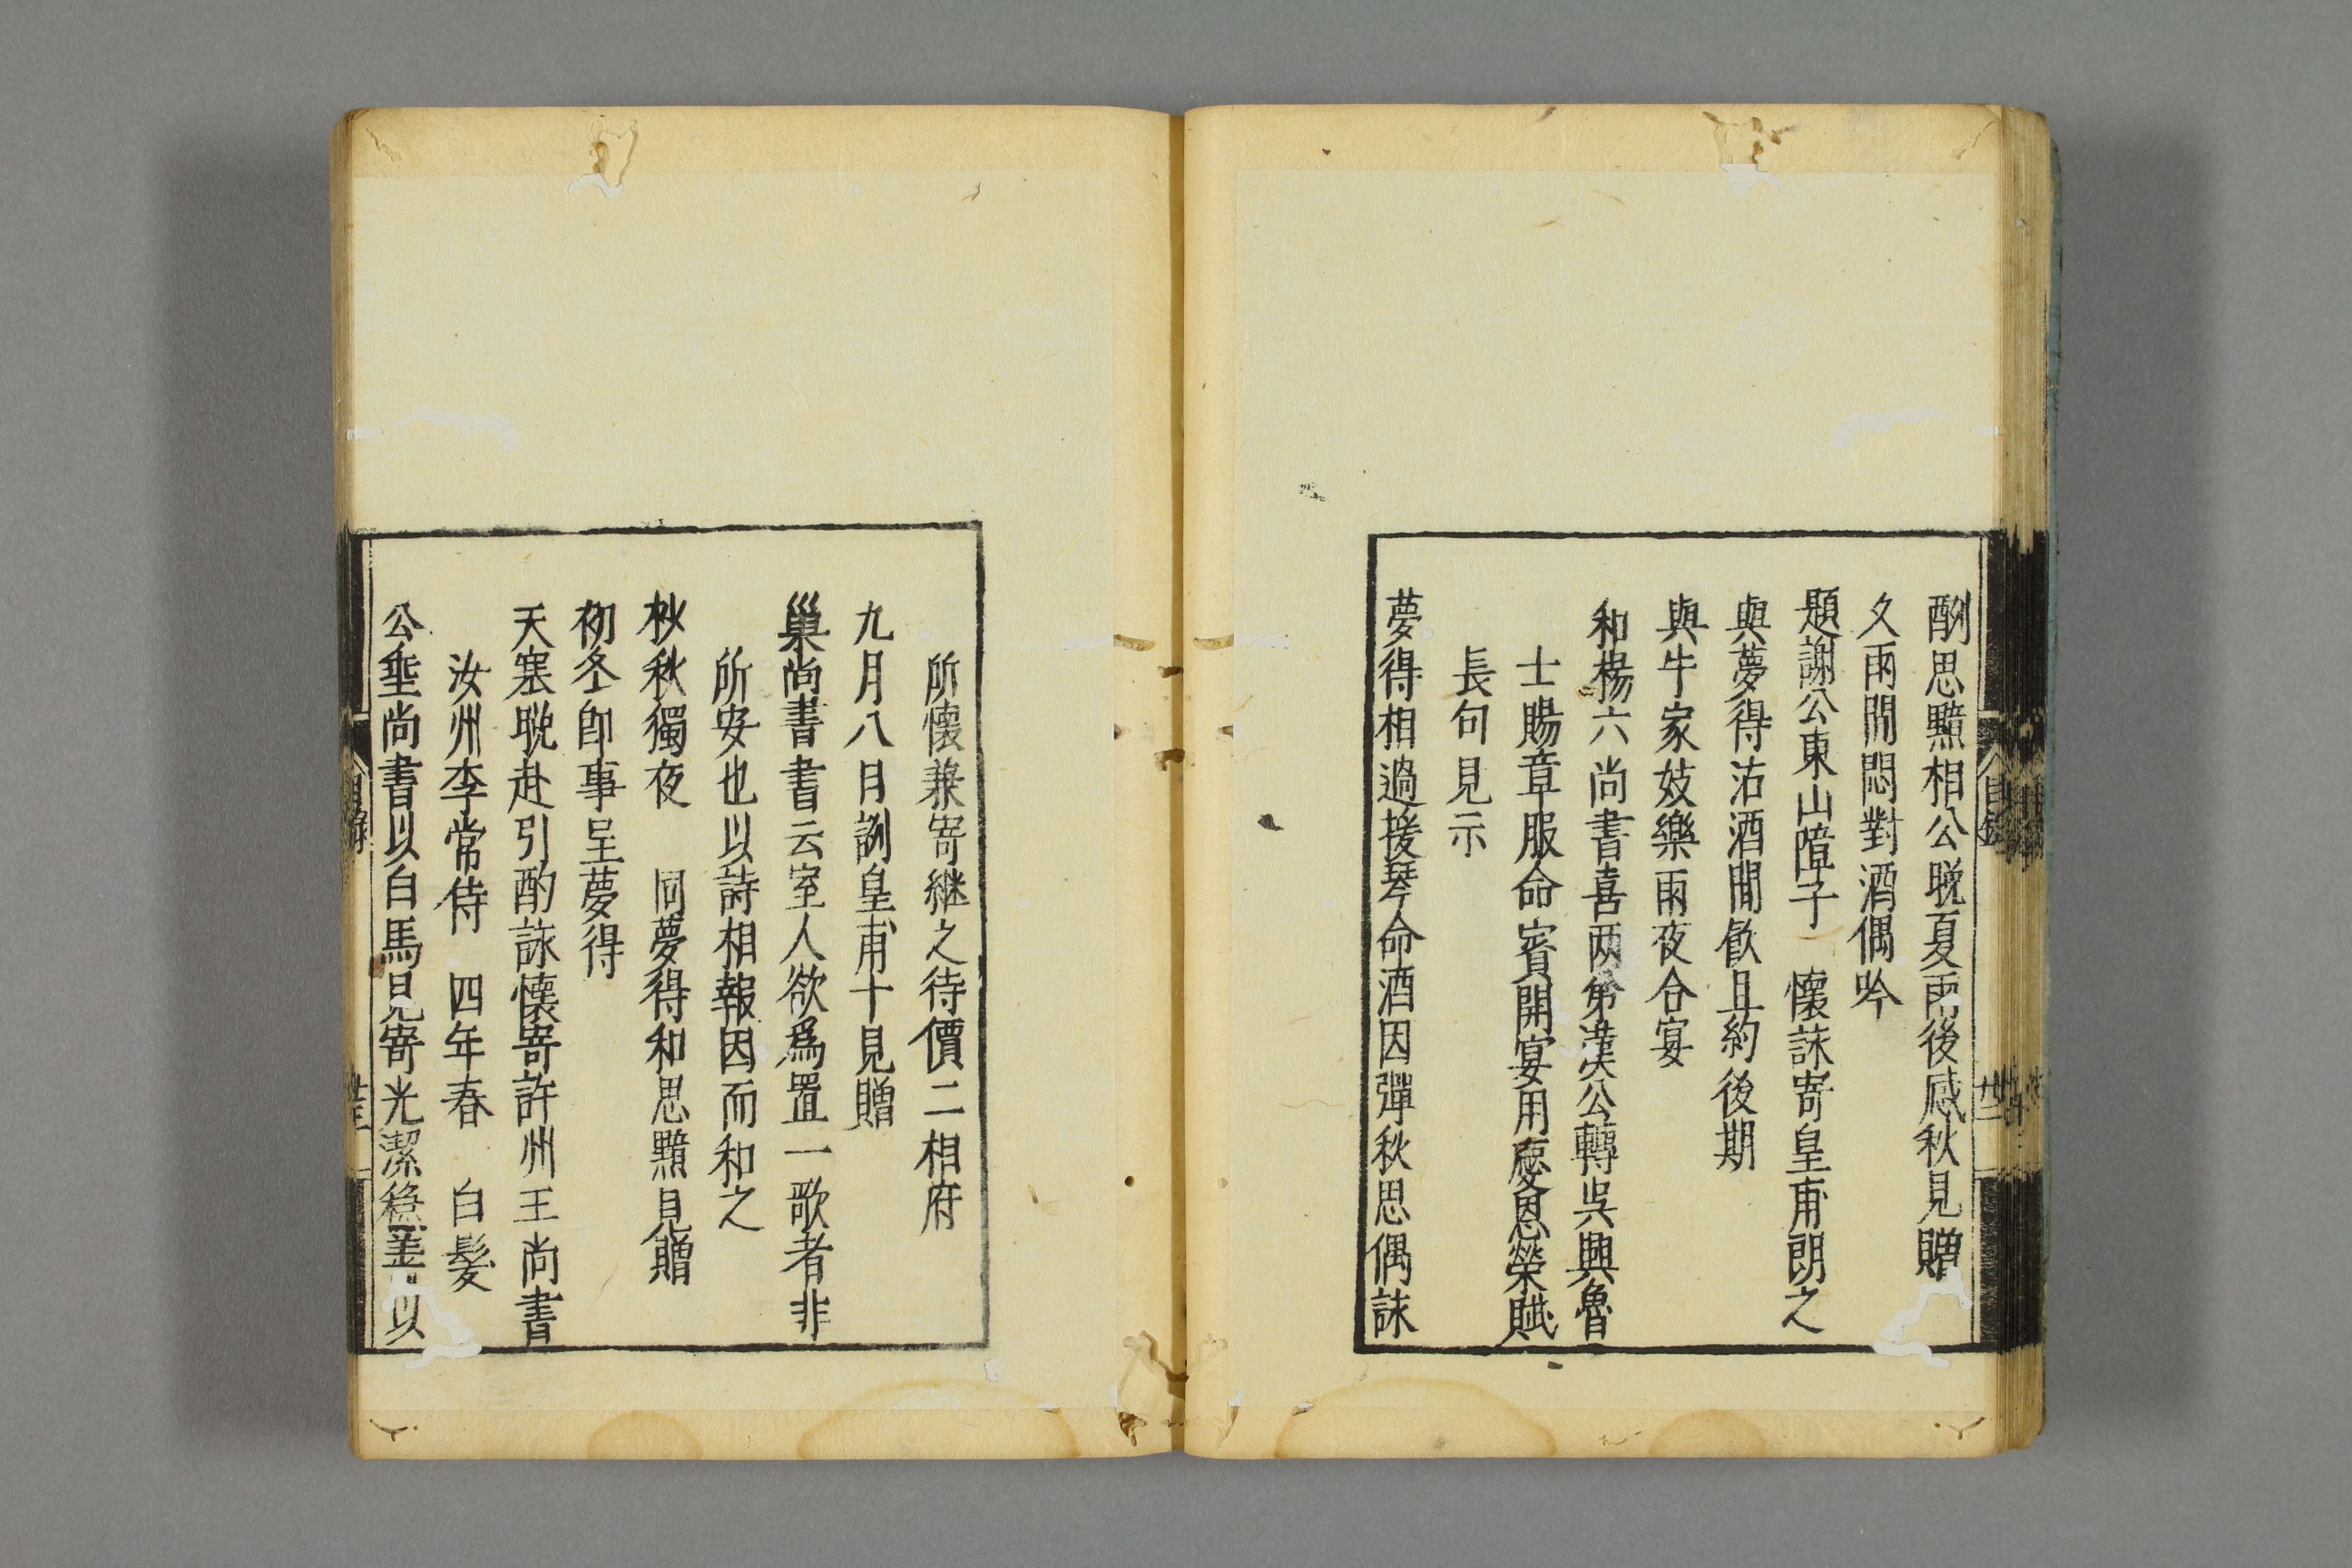 酬思黯相公晚夏雨後感秋見贈
久雨閑悶對酒偶吟
題謝公東山障子　懷詠寄皇甫朗之
與夢得沽酒閒飲且約後期
與牛家妓樂雨夜合宴
和楊六尚書喜两弟漢公轉吳興魯
士賜章服命賓開宴用慶恩榮賦
長句見示
夢得相過援琴命酒因彈秋思偶詠
所懷兼寄継之待價二相府
九月八日詶皇甫十見贈
巢尚書書云室人欲爲置一歌者非
所安也以詩相報因而和之
杪秋獨夜　同夢得和思黯見贈
初冬卽事呈夢得
天寒晚赴引酌詠懷寄許州王尚書
汝州李常侍　四年春　白髮
公垂尚書以白馬見寄光潔穩善以